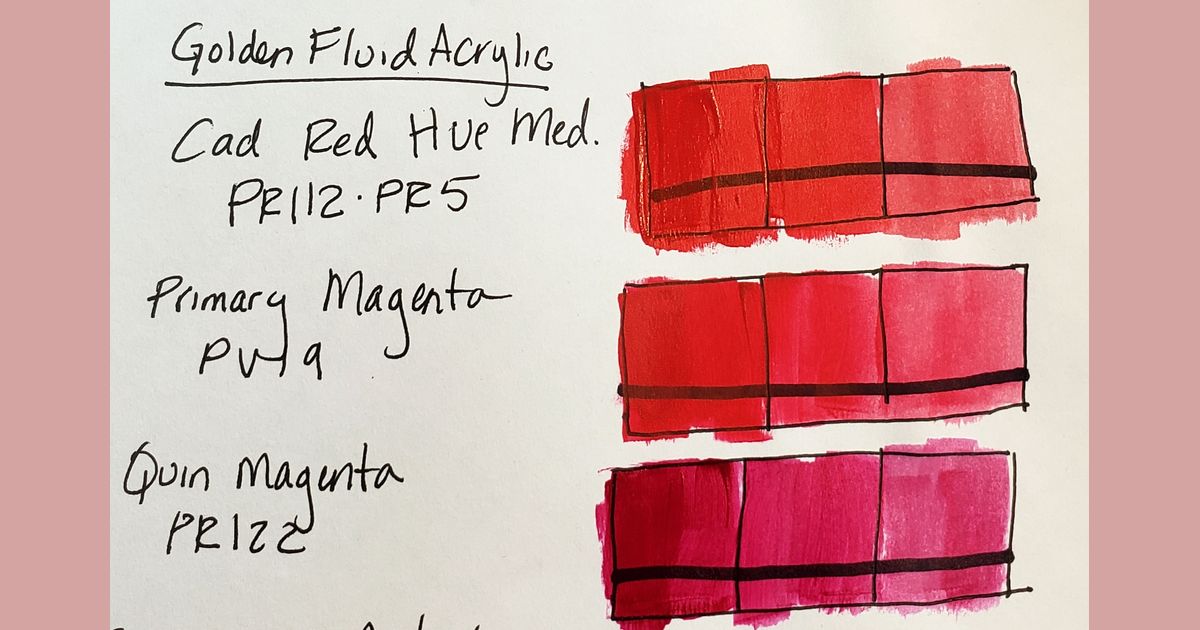 Golden Fluid Acrylic
Cad Red Hue Med.
PR112·PR5
Primary Magenta
PV19
Quin Magenta
PR122